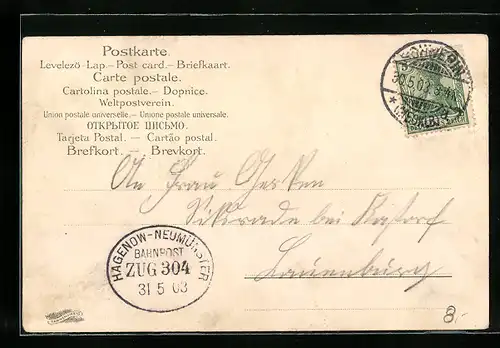 Postkarte.
Levelező-Lap. – Post card. – Briefkaart.
Carte postale.
Cartolina postale. – Dopnice.
Weltpostverein.
Union postale universelle. – Unione postale universale.
ОТКРЫТОЕ ПИСЬМО.
Tarjeta Postal. – Cartão postal.
Brefkort. – Brevkort.
SCHWERIN
An Frau Gerken
Sikrade bei Kastorf
Lauenburg
HAGENOW-NEUMÜNSTER
BAHNPOST
ZUG 304
31 5 03
8.-